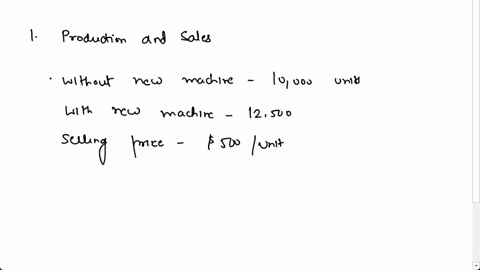 1. Production and Sales
. Without new machine - 10,000 units
With new machine - 12.500
Selling price - $500 /unit